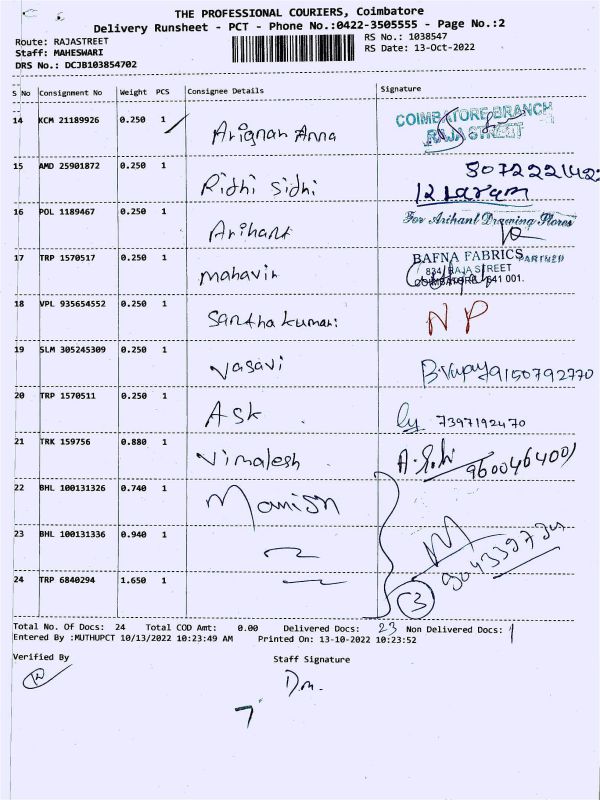 THE PROFESSIONAL COURIERS, Coimbatore
Delivery Runsheet - PCT - Phone No.:0422-3505555 - Page No.:2
Route: RAJASTREET
Staff: MAHESWARI
DRS No.: DCJB103854702
RS No.: 1038547
RS Date: 13-Oct-2022
S No Consignment No Weight PCS Consignee Details Signature
14 KCM 21189926 0.250 1 Arignar Anna COIMBATORE-BRANCH
RAJA STREET
15 AMD 25901872 0.250 1 Ridhi Sidhi
16 POL 1189467 0.250 1 Arihant For Arihant Drawing Stores
PARTNER
17 TRP 1570517 0.250 1 mahavir BAFNA FABRICS
834, RAJA STREET
COIMBATORE - 641 001.
18 VPL 935654552 0.250 1 Santha kumari NP
19 SLM 305245309 0.250 1 Vasavi 9150792770
20 TRP 1570511 0.250 1 ASK 7397192470
21 TRK 159756 0.880 1 Vimalesh 9600464001
22 BHL 100131326 0.740 1 Manish
23 BHL 100131336 0.940 1
24 TRP 6840294 1.650 1 3
Total No. Of Docs: 24 Total COD Amt: 0.00 Delivered Docs: 23 Non Delivered Docs: 1
Entered By :MUTHUPCT 10/13/2022 10:23:49 AM Printed On: 13-10-2022 10:23:52
Verified By Staff Signature